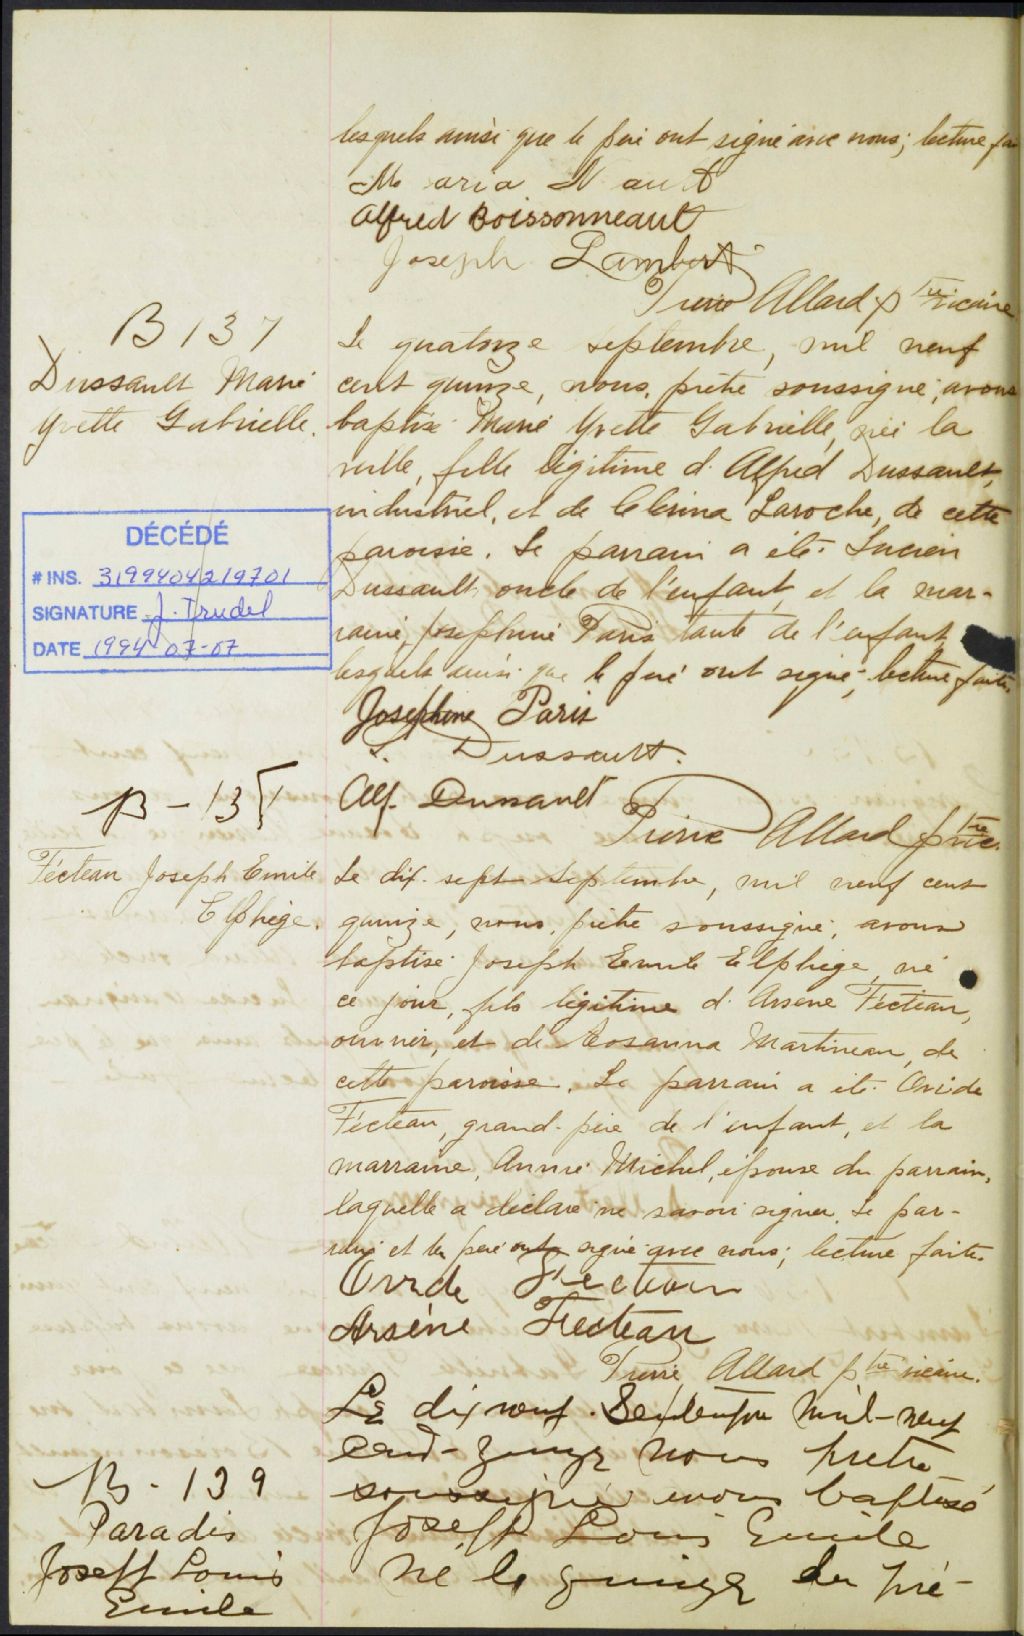 lesquels ainsi que le père ont signé avec nous; lecture
Maria Nault
Alfred Boissonneault
Joseph Lambert
Pierre Allard ptre vicaire
B 137
Dussault Marie
Yvette Gabrielle.
Le quatorze septembre, mil neuf
cent quinze, nous, prêtre soussigné, avons
baptisé Marie Yvette Gabrielle, née la
veille, fille légitime d'Alfred Dussault,
industriel, et de Célérina Laroche, de cette
paroisse. Le parrain a été Lucien
Dussault, oncle de l'enfant, et la mar-
raine, Joséphine Paris tante de l'enfant
lesquels ainsi que le père ont signé, lecture faite.
DÉCÉDÉ
# INS. 3199404219701
SIGNATURE J. Trudel
DATE 1994 07-07
Josephine Paris
L. Dussault.
Alf. Dussault
Pierre Allard ptre vic.
B - 13
Fecteau Joseph Emile
Elphège.
Le dix-sept septembre, mil neuf cent
quinze, nous, prêtre soussigné, avons
baptisé Joseph Emile Elphège, né
ce jour, fils légitime d'Arsène Fecteau,
ouvrier, et de Rosanna Martineau, de
cette paroisse. Le parrain a été Ovide
Fecteau, grand-père de l'enfant, et la
marraine, Annie Michel, épouse du parrain,
laquelle a déclaré ne savoir signer. Le par-
rain et le père ont signé avec nous; lecture faite.
Ovide Fecteau
Arsène Fecteau
Pierre Allard ptre vicaire.
B - 139
Paradis
Joseph Louis
Emile
Le dix neuf Septembre mil-neuf
cent-quinze nous prêtre
soussigné avons baptisé
Joseph Louis Emile
né le quinze du pré-